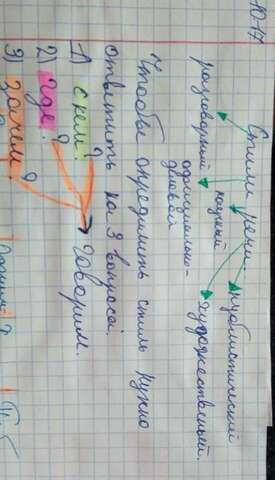 10.17
Стили речи
разговорный научный публицистический
официально-
деловой
художественный.
Чтобы определить стиль нужно
ответить на 3 вопроса.
1) с кем?
2) где? говорим.
3) зачем?